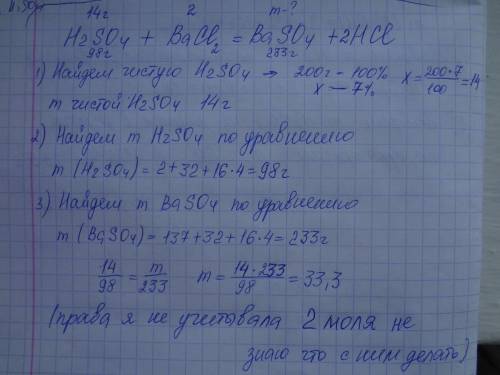 14г 2 m-?
H₂SO₄ + BaCl₂ = BaSO₄ + 2HCl
98г 233г
1) Найдем чистую H₂SO₄ → 200г - 100% x = 200·7/100 = 14
x — 7%
m чистой H₂SO₄ 14г
2) Найдем m H₂SO₄ по уравнению
m (H₂SO₄) = 2+32+16·4 = 98г
3) Найдем m BaSO₄ по уравнению
m (BaSO₄) = 137+32+16·4 = 233г
14/98 = m/233 m = 14·233/98 = 33,3
(права я не учитывала 2 моля не
знаю что с ним делать)